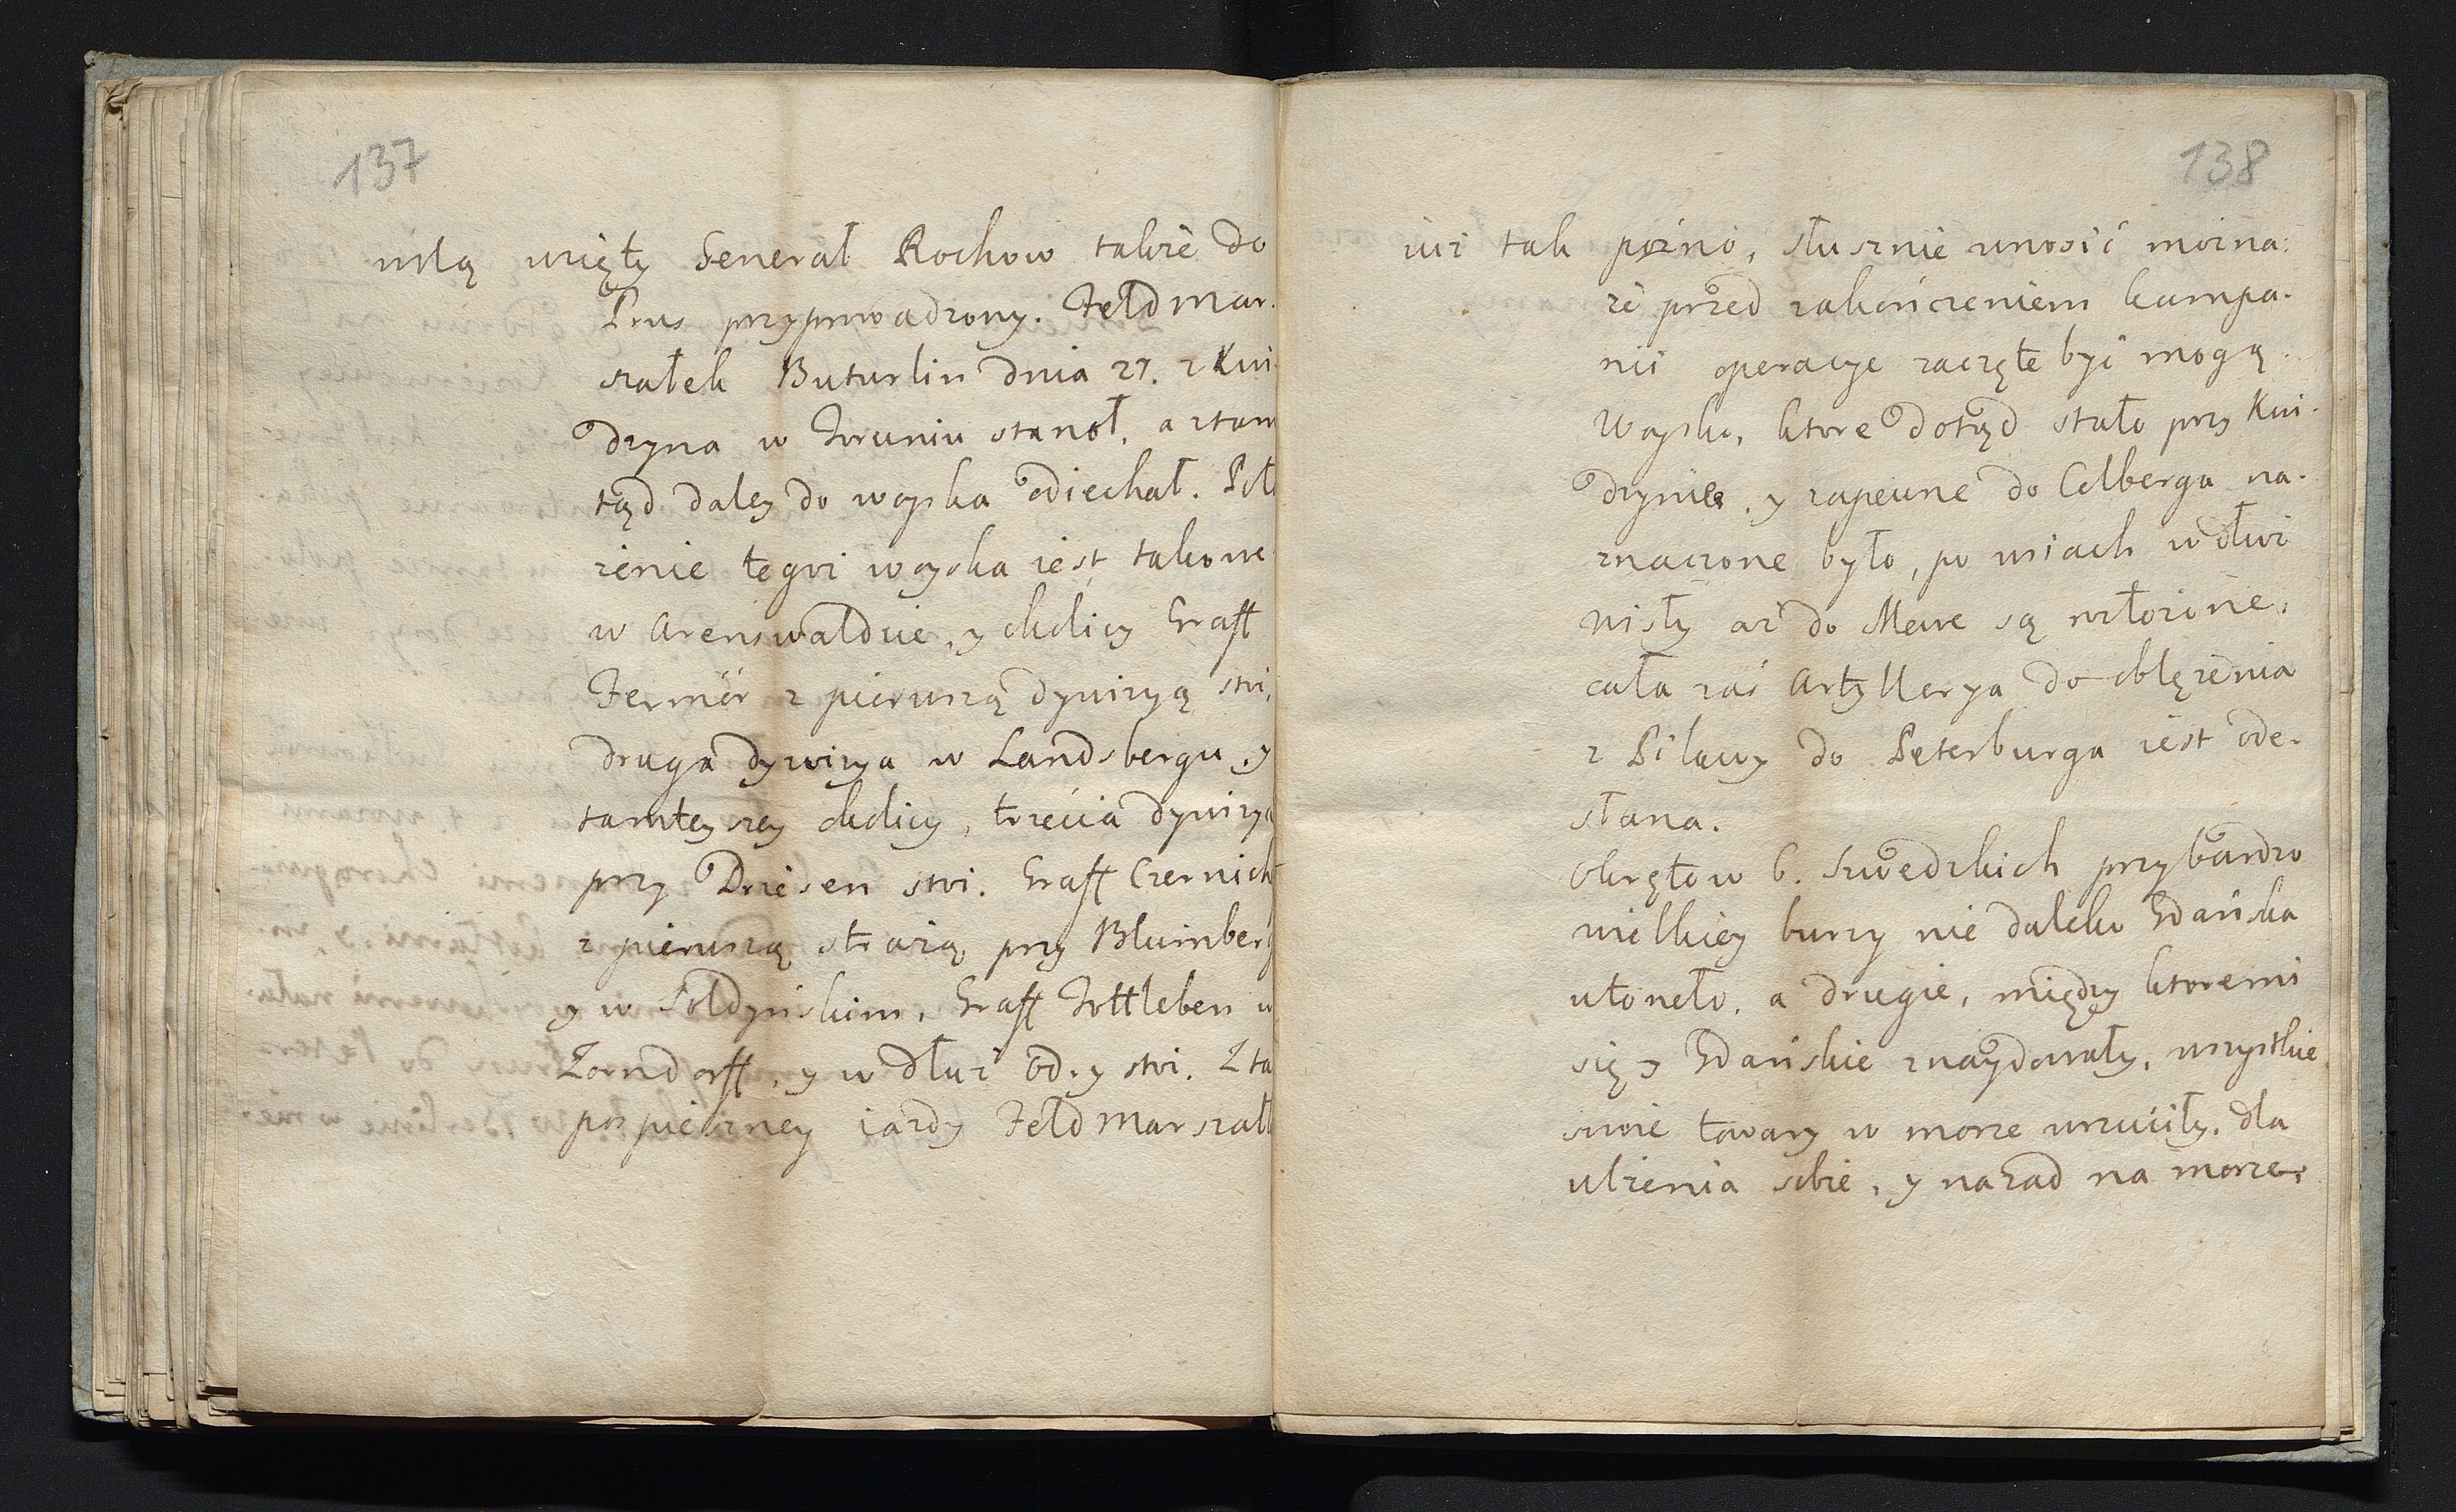 137
wolą wzięty General Rochow takze do
Prus przyprowadzony. Feldmar-
szałek Buturlin dnia 27. z Kwi-
dzyna w Toruniu stanoł, a ztam
tąd daley do woyska odiechał. Poło
zenie tegoż woyska iest takowe
w Arenswaldzie, y okolicy Graff
Fermor z pierwszą dywizyą stoi,
druga dywizya w Landsbergu, y
tamteyszey okolicy, trzecia dywizya
przy Driesen stoi. Graff Czernich
z pierwszą strażą przy Blumberg
y w Soldyńskim, Graff Tottleben w
Zorndorff, y wdłuż Odry stoi. Z ta
pospieszney iazdy Feldmarszał
138
iuż tak pózno, słusznie wnosić można:
że przed zakończeniem kampa-
nii operacye zaczęte być mogą.
Woysko, ktore dotąd stało przy Kwi-
dzynie, y zapewne do Colberga na-
znaczone było, po wsiach wdłuż
Wisły aż do Mewe są rozłożone,
cała zaś Artyllerya do oblężenia
z Pilawy do Peterburga iest ode-
słana.
Okrętow 6. Szwedzkich przy bardzo
wielkiey burzy nie daleko Gdańska
utoneło, a drugie, między ktoremi
się y Gdańskie znaydowały, wszystkie
swoie towary w morze wrzuciły, dla
ulżenia sobie, y nazad na morze,